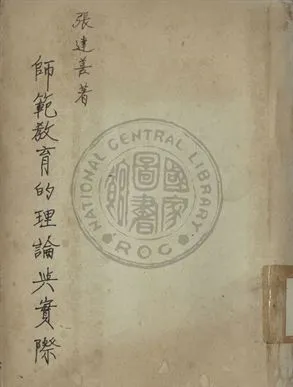 張達善著
師範教育的理論與實際
NATIONAL CENTRAL LIBRARY
ROC
國家圖書館